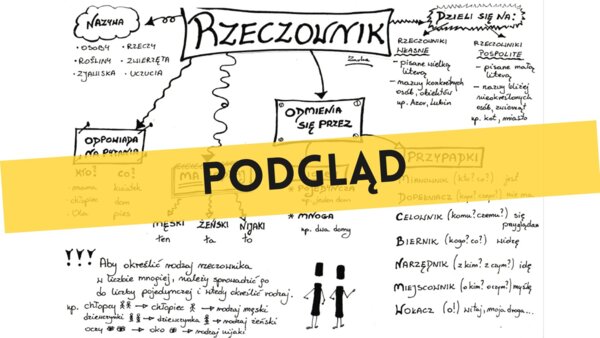 RZECZOWNIK
NAZYWA
• OSOBY • RZECZY
• ROŚLINY • ZWIERZĘTA
• ZJAWISKA • UCZUCIA
DZIELI SIĘ NA:
RZECZOWNIKI
WŁASNE
- pisane wielką
literą
- nazwy konkretnych
osób, obiektów
np. Azor, Lubin
RZECZOWNIKI
POSPOLITE
- pisane małą
literą
- nazwy bliżej
nieokreślonych
osób, zwierząt
np. kot, miasto
ODMIENIA
SIĘ PRZEZ
ODPOWIADA
NA PYTANIA
KTO? CO?
- mama kwiatek
- chłopiec dom
- Ola pies
MA
MĘSKI ŻEŃSKI NIJAKI
ten ta to
PODGLĄD
* POJEDYNCZA
np. jeden dom
* MNOGA
np. dwa domy
PRZYPADKI
MIANOWNIK (kto? co?) jest
DOPEŁNIACZ (kogo? czego?) nie ma
CELOWNIK (komu? czemu?) się
przyglądam
BIERNIK (kogo? co?) widzę
NARZĘDNIK (z kim? z czym?) idę
MIEJSCOWNIK (o kim? o czym?) myślę
WOŁACZ (o!) witaj, moja droga...
!!! Aby określić rodzaj rzeczownika
w liczbie mnogiej, należy sprowadzić go
do liczby pojedynczej i wtedy określić rodzaj.
np. chłopcy → chłopiec → rodzaj męski
dziewczynki → dziewczynka → rodzaj żeński
oczy → oko → rodzaj nijaki